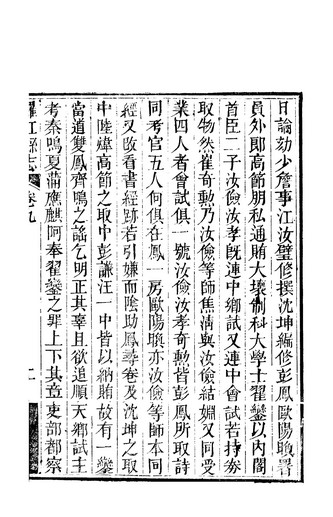 日論劾少詹事江汝璧修撰沈坤編修彭鳳歐陽㬇署
員外郎高節朋私通賄大壞制科大學士翟鑾以內閣
首臣二子汝儉汝孝既連中鄉試又連中會試若持券
取物然崔奇勲乃汝儉等師焦清與汝儉結姻又同受
業四人者會試俱一號汝儉汝孝奇勲皆彭鳳所取詩
同考官五人何俱在鳳一房歐陽㬇亦汝儉等師本同
經又改看書經跡若引嫌而陰助鳳尋卷及沈坤之取
中陸煒高節之取中彭謙汪一中皆以納賄故有一鑾
當道雙鳳齊鳴之謠乞明正其辜且欲追順天鄉試主
考秦鳴夏浦應麒阿奉翟鑾之罪上下其章吏部都察
江縣志
卷九
二